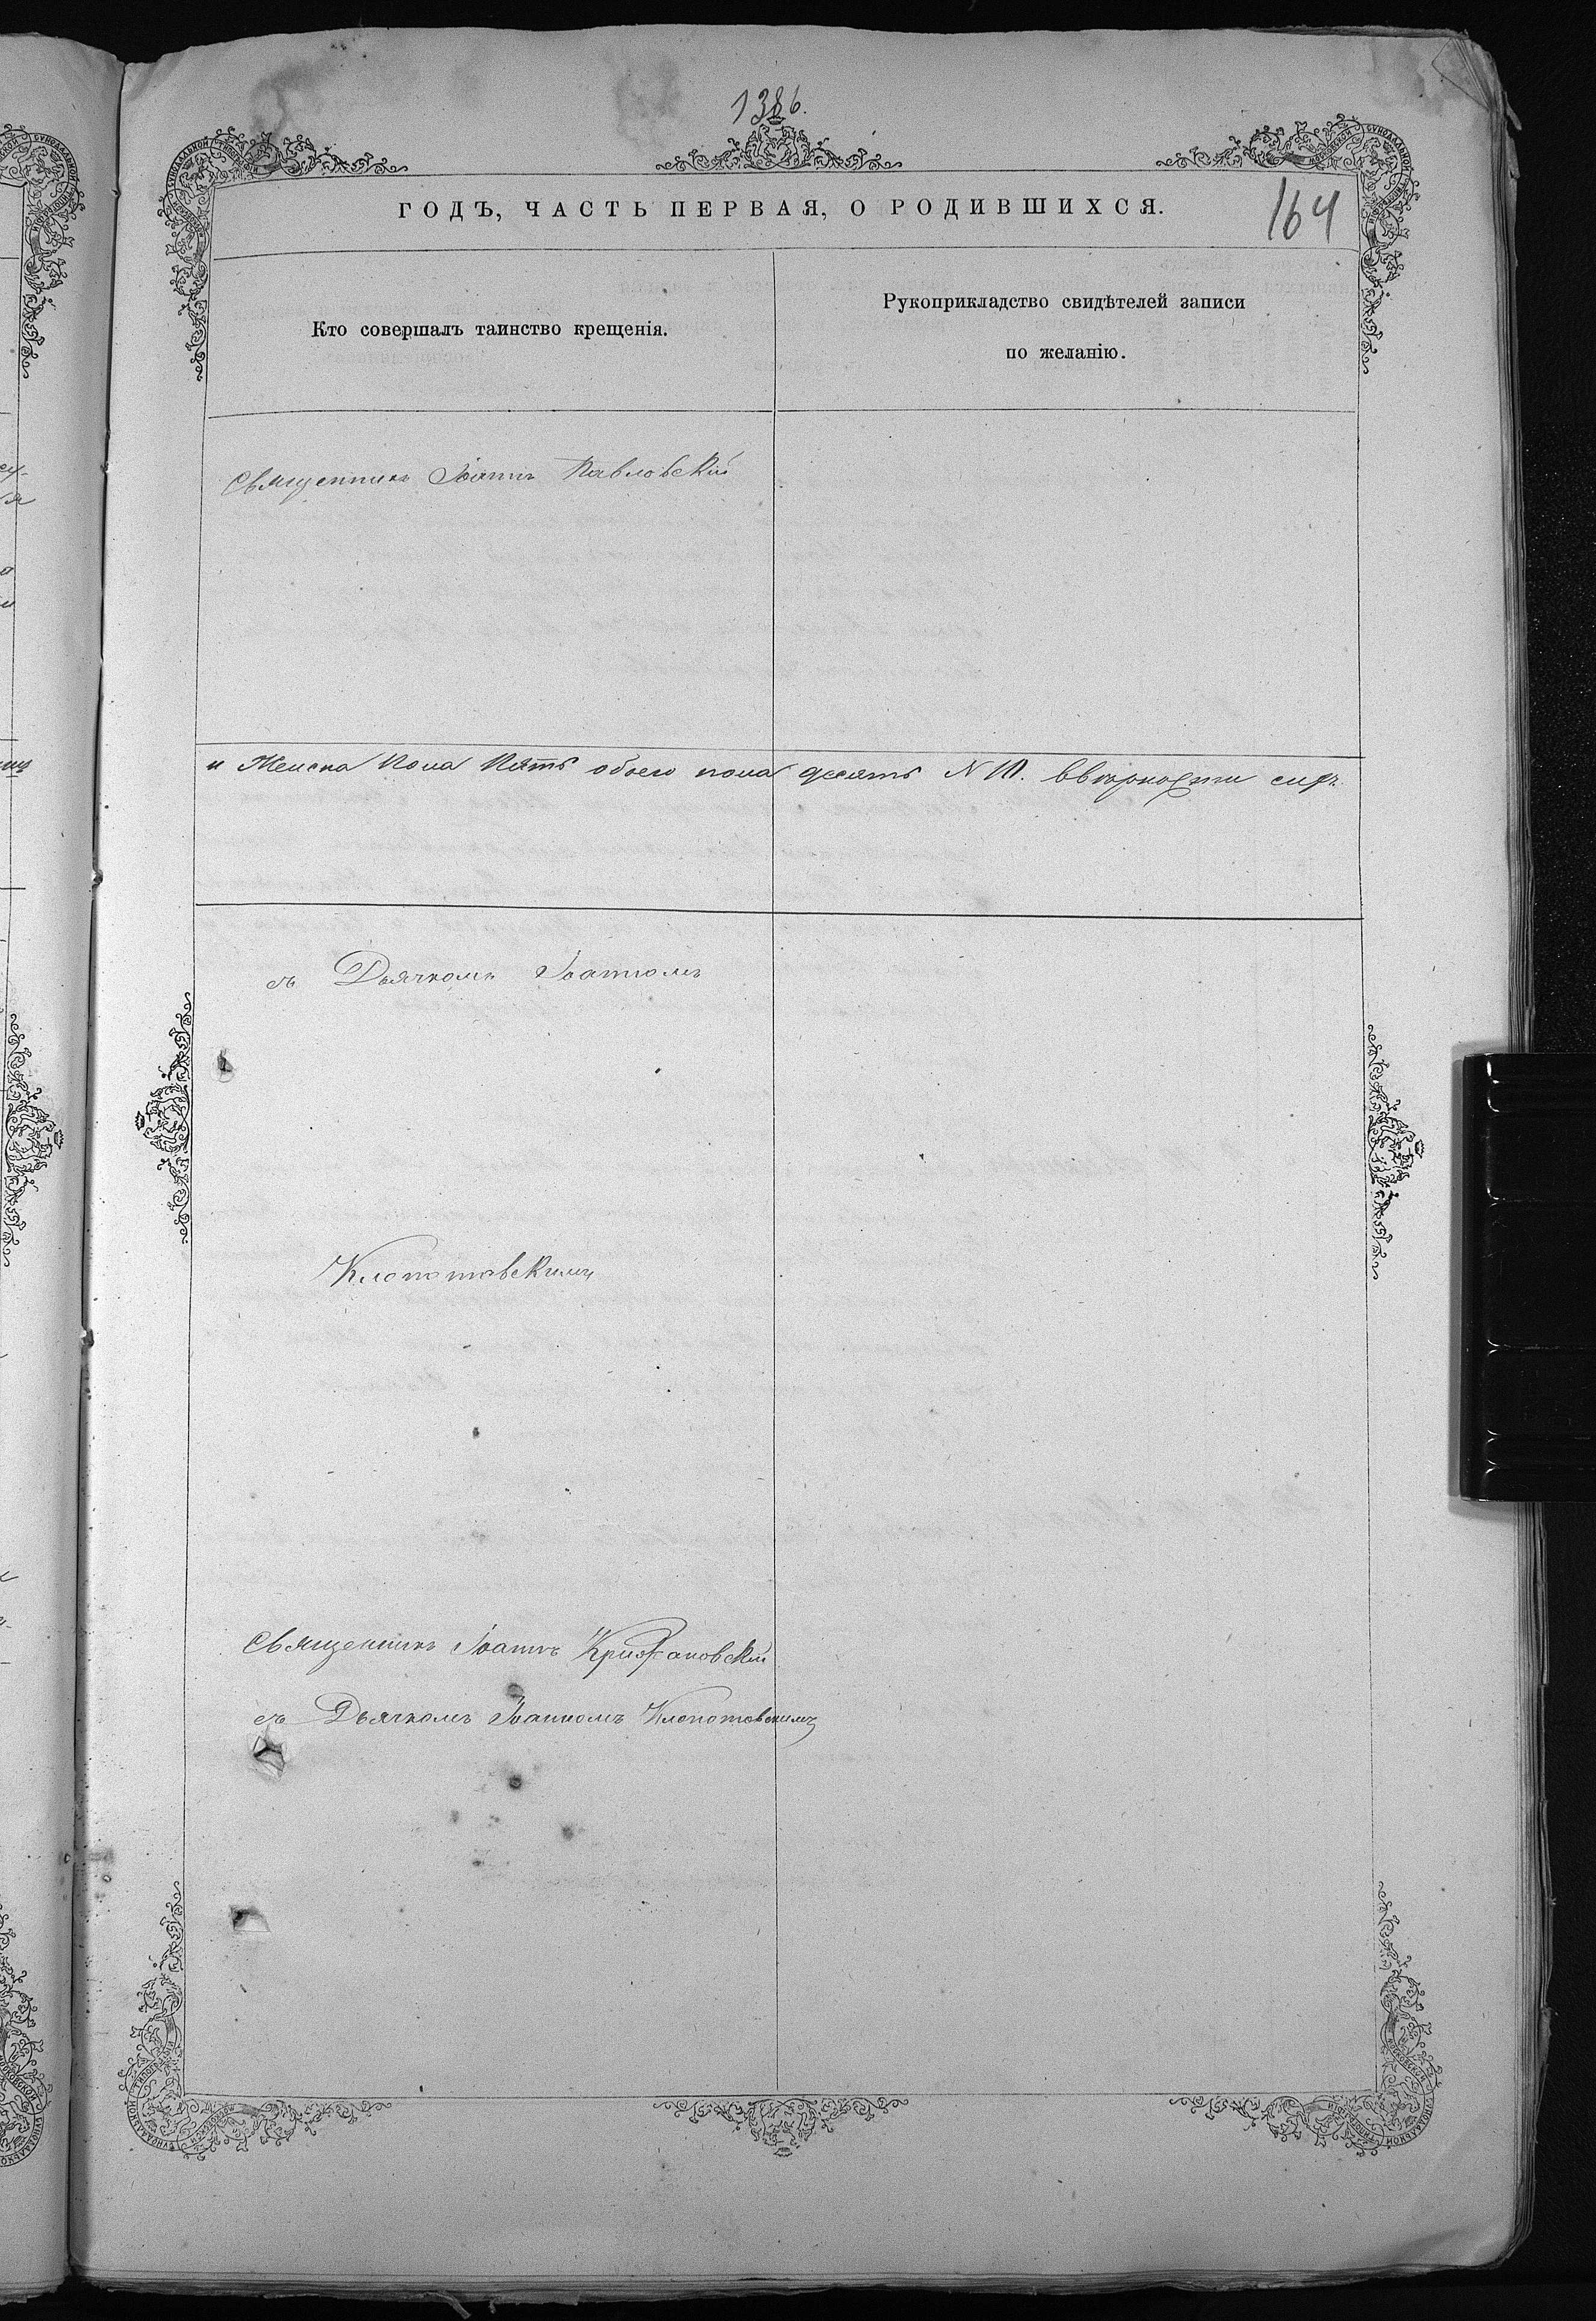 1386.
164
ГОДЪ, ЧАСТЬ ПЕРВАЯ, О РОДИВШИХСЯ.
Кто совершалъ таинство крещенія.
Рукоприкладство свидѣтелей записи
по желанію.
Священникъ Іоаннъ Павловскій
и Женска Пола Пять обоего пола десять N 10. ввѣрности сихъ
съ Дьячкомъ Іоанномъ
Клопотовскимъ
Священникъ Іоаннъ Крижановскій
съ Дьячкомъ Іоанномъ Клопотовскимъ